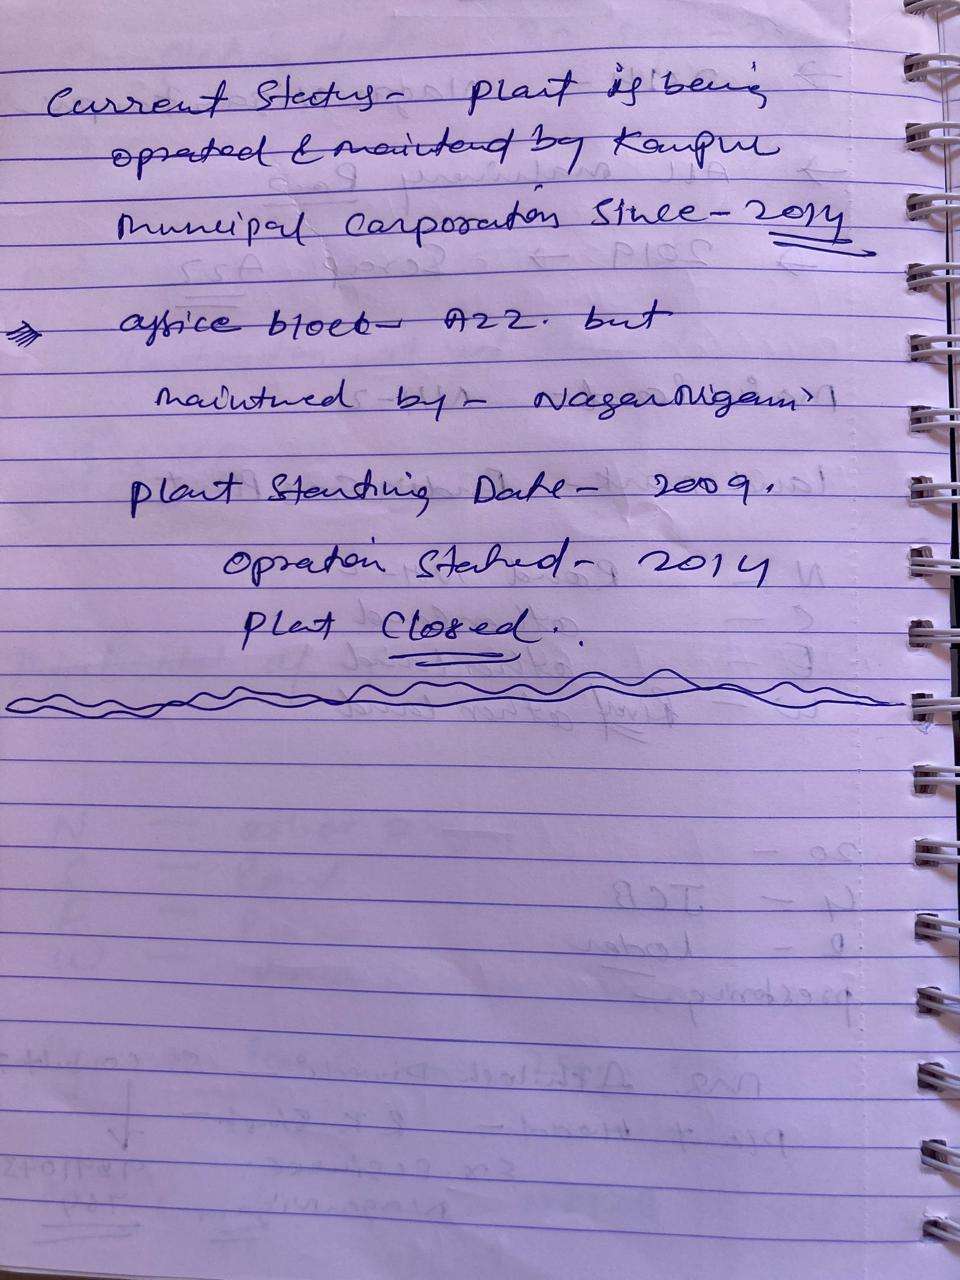 Current Status- plant is being
oprated & maintend by Kanpur
Municipal Corporation Since - 2014
office block - A2Z. but
maintned by - Nagar Nigam
plant Starting Date - 2009.
Opration Started - 2014
Plant Closed.